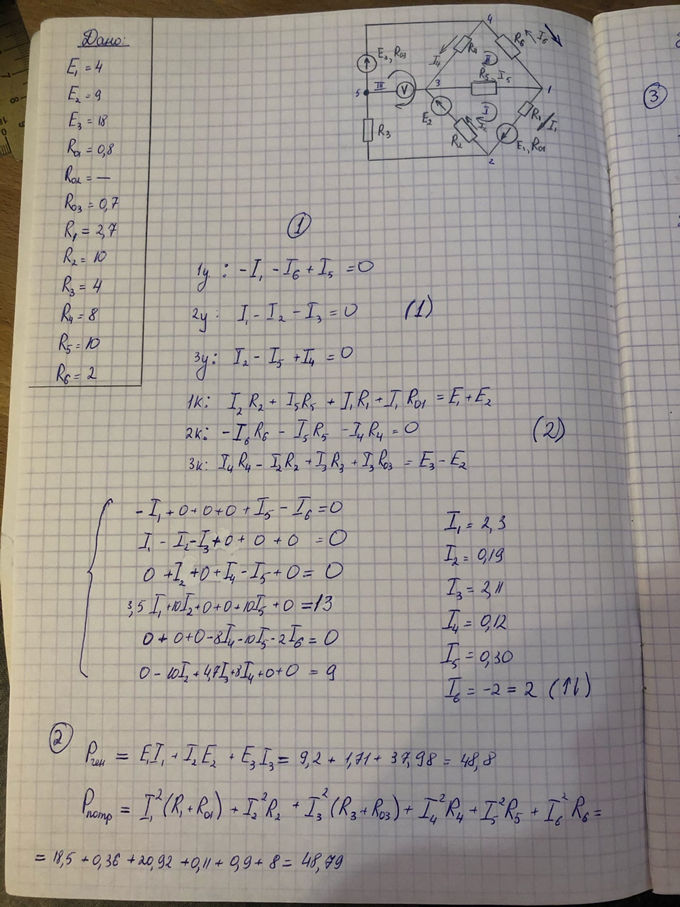 Дано:
E₁ = 4
E₂ = 9
E₃ = 18
R₀₁ = 0,8
R₀₂ = —
R₀₃ = 0,7
R₁ = 2,7
R₂ = 10
R₃ = 4
R₄ = 8
R₅ = 10
R₆ = 2
4
I₄
R₄
II
R₆
I₆
E₃, R₀₃
5
III
V
3
R₅
I₅
1
I
E₂
R₂
I₂
R₁
I₁
E₁, R₀₁
R₃
2
3
1
1у : -I₁ - I₆ + I₅ = 0
2у : I₁ - I₂ - I₃ = 0 (1)
3у : I₂ - I₅ + I₄ = 0
1к: I₂R₂ + I₅R₅ + I₁R₁ + I₁R₀₁ = E₁ + E₂
2к: -I₆R₆ - I₅R₅ - I₄R₄ = 0 (2)
3к: I₄R₄ - I₂R₂ + I₃R₃ + I₃R₀₃ = E₃ - E₂
-I₁ + 0 + 0 + 0 + I₅ - I₆ = 0
I₁ - I₂ - I₃ + 0 + 0 + 0 = 0
0 + I₂ + 0 + I₄ - I₅ + 0 = 0
3,5I₁ + 10I₂ + 0 + 0 + 10I₅ + 0 = 13
0 + 0 + 0 - 8I₄ - 10I₅ - 2I₆ = 0
0 - 10I₂ + 4,7I₃ + 8I₄ + 0 + 0 = 9
I₁ = 2,3
I₂ = 0,19
I₃ = 2,11
I₄ = 0,12
I₅ = 0,30
I₆ = -2 = 2 (↑↓)
2
Pген = E₁I₁ + I₂E₂ + E₃I₃ = 9,2 + 1,71 + 37,98 = 48,8
Pпотр = I₁²(R₁+R₀₁) + I₂²R₂ + I₃²(R₃+R₀₃) + I₄²R₄ + I₅²R₅ + I₆²R₆ =
= 18,5 + 0,36 + 20,92 + 0,11 + 0,9 + 8 = 48,79